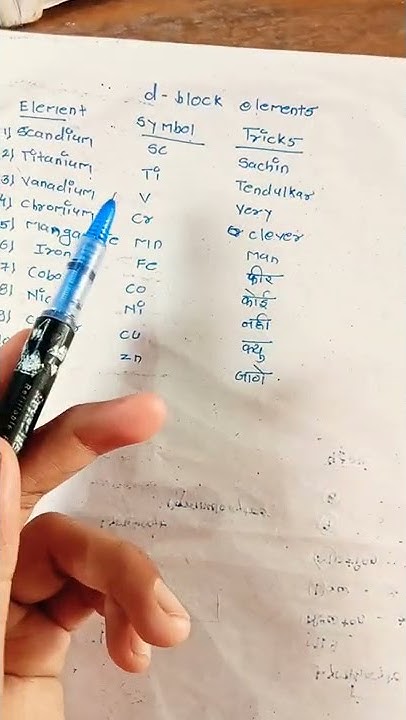 d-block elements
Element Symbol Tricks
1) Scandium Sc Sachin
2) Titanium Ti Tendulkar
3) Vanadium V Very
4) Chromium Cr clever
5) Mn Man
6) Iron Fe फीर
7) Co कोई
8) Ni नही
Cu क्यु
Zn जागे